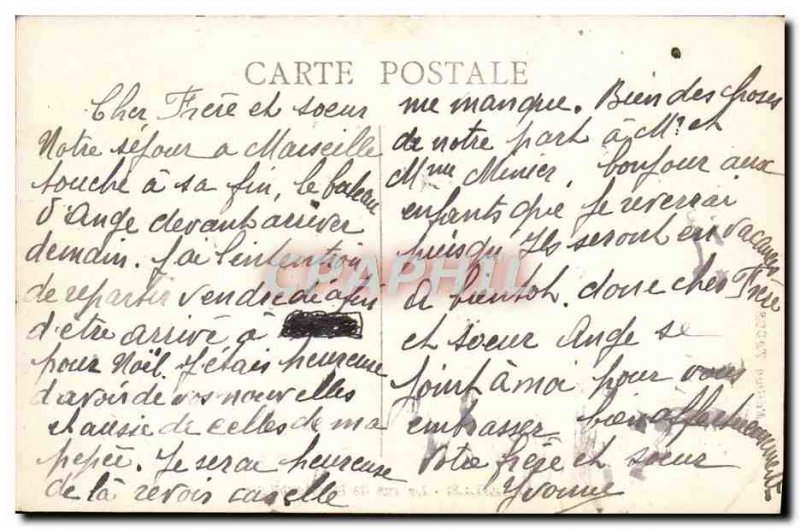 CARTE POSTALE
Cher Frère et soeur
Notre séjour a Marseille
touche à sa fin, le bateau
d'Ange devant arriver
demain. J'ai l'intention
de repartir vendredi afin
d'etre arrivé à
pour Noël. J'etais heureuse
d'avoir de vos nouvelles
et ausie de celles de ma
pepée. Je serai heureuse
de la revoir car elle
me manque. Bien des choses
de notre part à Mr et
Mme Minier, bonjour aux
enfants que je reverrai
puisqu'Ils seront en vacances
A bientot. donc cher Frère
et soeur Ange se
joint à moi pour vous
embrasser bien affectueusement
Votre frère et soeur
Yvonne
CPAPHIL